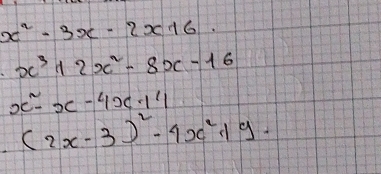 x² - 3x - 2x + 6.
x³ + 2x² - 8x - 16
x² - x - 4x + 4
(2x - 3)² - 4x² + 9.